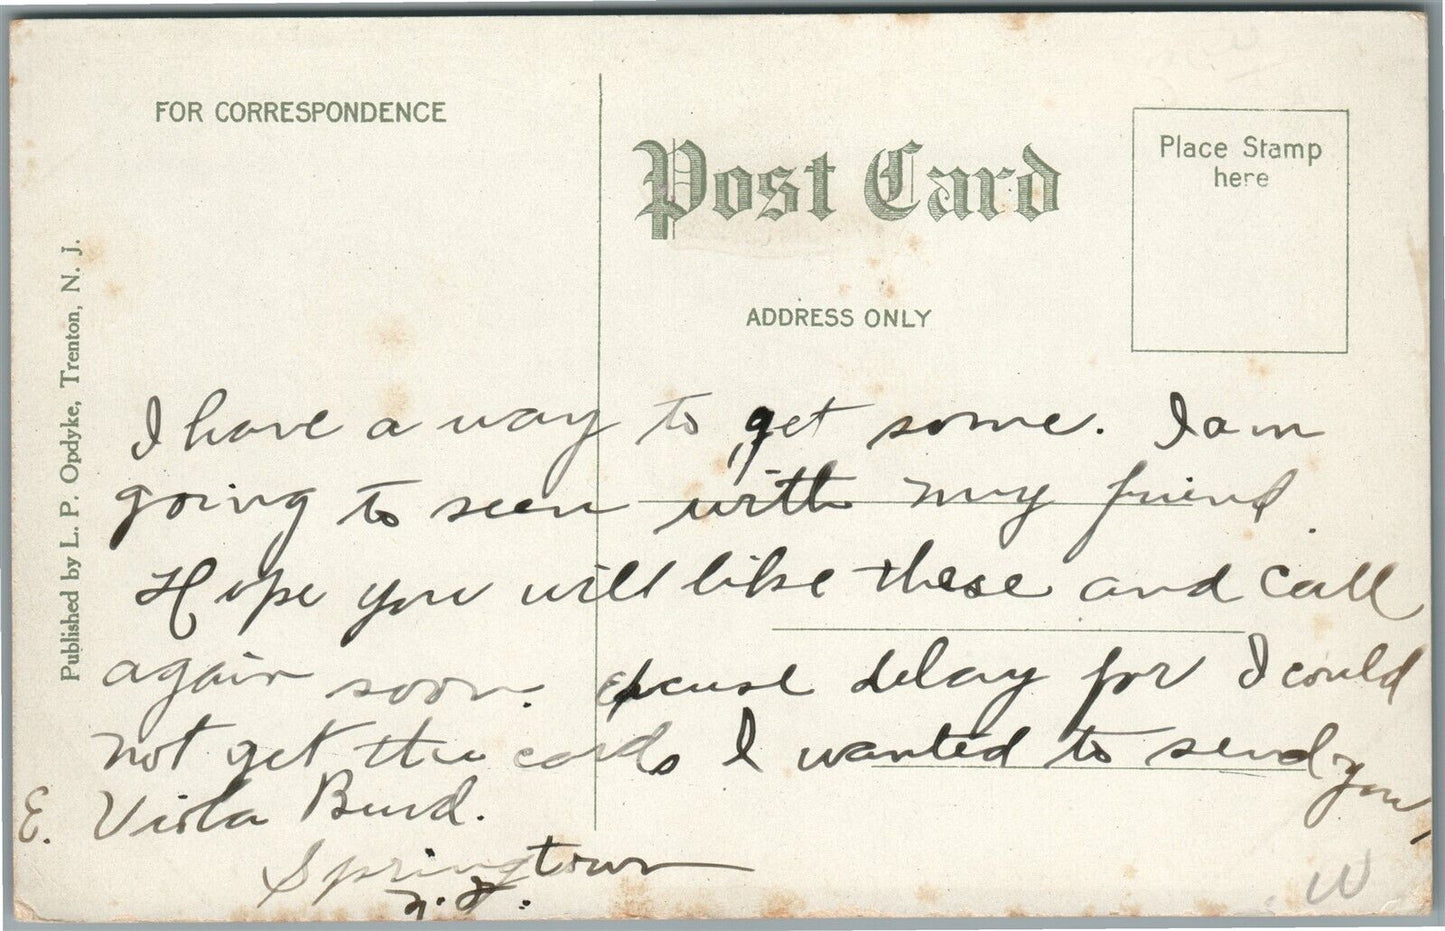 FOR CORRESPONDENCE
Post Card
Place Stamp
here
ADDRESS ONLY
Published by L. P. Opdyke, Trenton, N. J.
I have a way to get some. I am
going to seen with my friend.
Hope you will like these and call
again soon. Excuse delay for I could
not get the cards I wanted to send you,
E. Viola Burd.
Springtown
N. J.
W